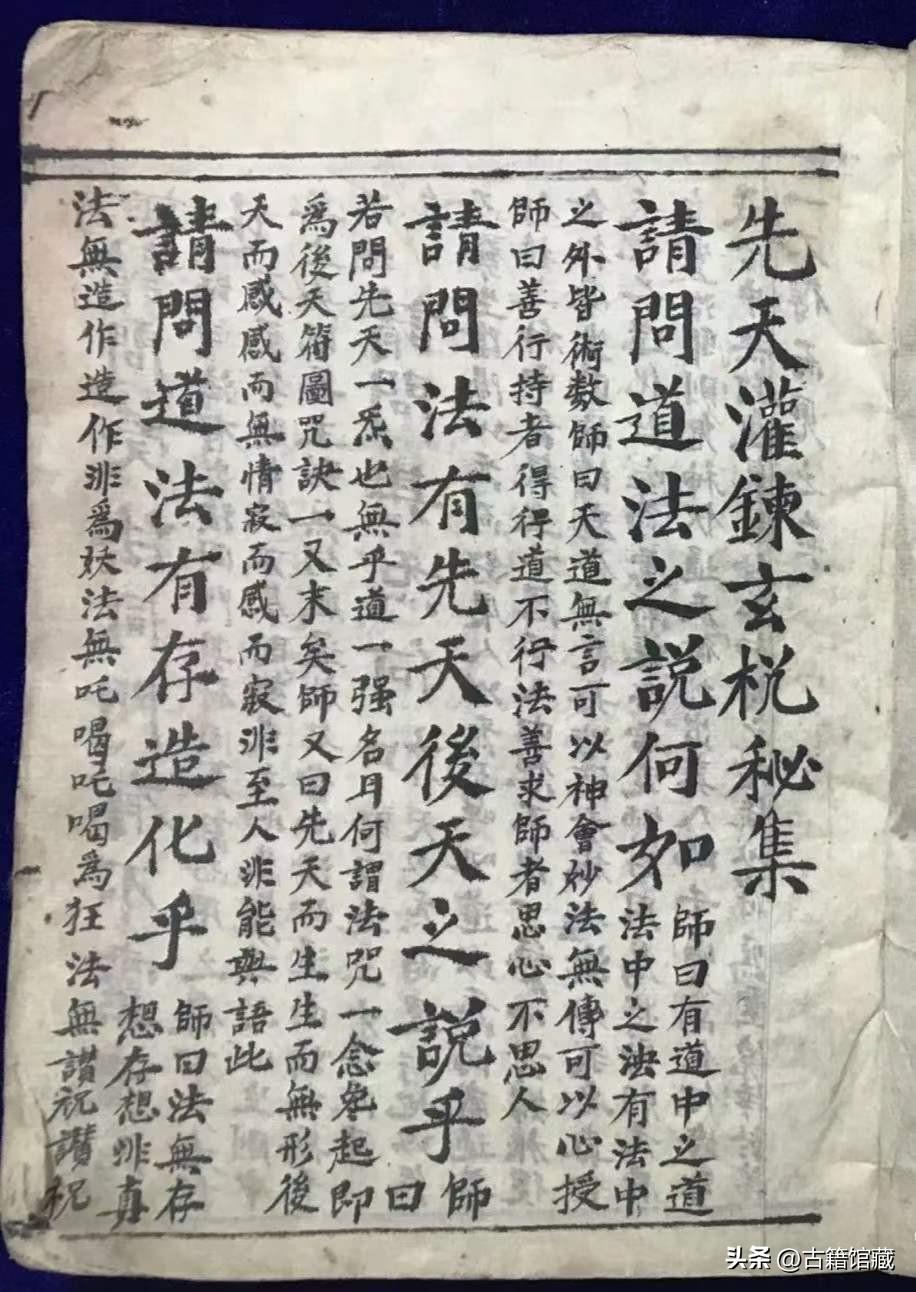 先天灌鍊玄棁秘集
請問道法之說何如
師曰有道中之道
法中之法有法中
之外皆術数師曰天道無言可以神會妙法無傳可以心授
師曰善行持者得得道不行法善求師者思心不思人
請問法有先天後天之說乎
師
曰
若問先天一炁也無乎道一强名耳何謂法咒一念纔起即
爲後天符圖咒訣一又末矣師又曰先天而生生而無形後
天而感感而無情寂而感而寂非至人非能與語此
請問道法有存造化乎
師曰法無存
想存想非真
法無造作造作非爲妖法無吒喝吒喝為狂法無讃祝讃祝
头条 @古籍馆藏